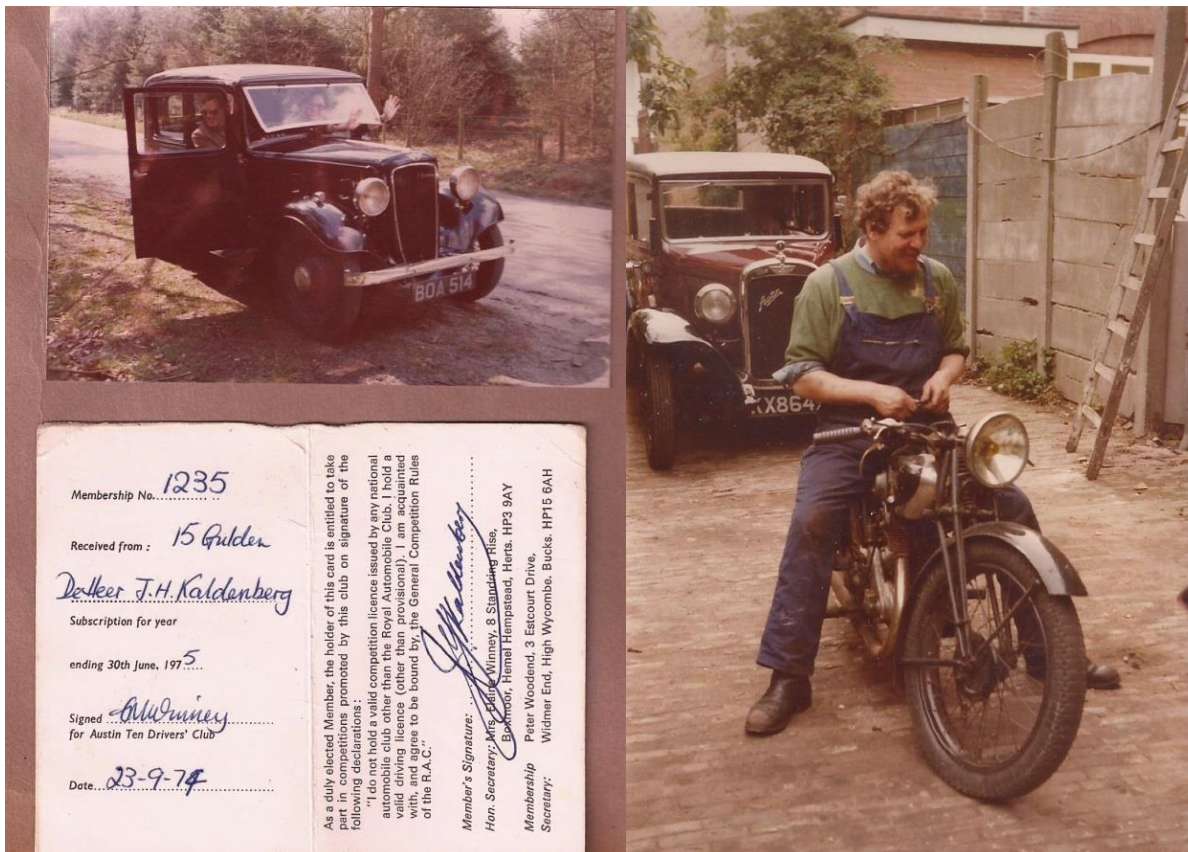 BOA 514
Austin
KX864
Membership No. 1235
Received from : 15 Gulden
De Heer J.H. Kaldenberg
Subscription for year
ending 30th June, 1975
Signed EMWinney
for Austin Ten Drivers' Club
Date 23-9-74
As a duly elected Member, the holder of this card is entitled to take
part in competitions promoted by this club on signature of the
following declarations:
"I do not hold a valid competition licence issued by any national
automobile club other than the Royal Automobile Club. I hold a
valid driving licence (other than provisional). I am acquainted
with, and agree to be bound by, the General Competition Rules
of the R.A.C."
Member's Signature: JHKaldenberg
Hon. Secretary: Mrs. Elaine Winney, 8 Standring Rise,
Boxmoor, Hemel Hempstead, Herts. HP3 9AY
Membership Peter Woodend, 3 Estcourt Drive,
Secretary: Widmer End, High Wycombe. Bucks. HP15 6AH